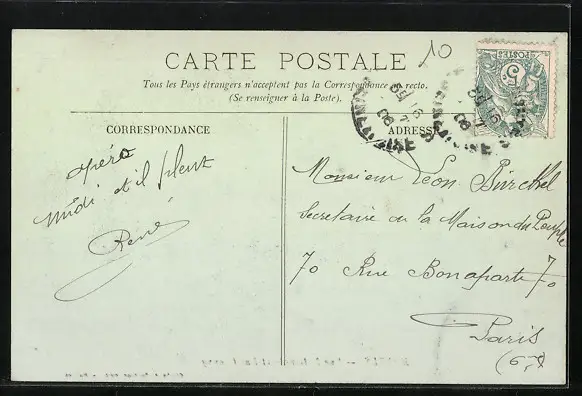 10
CARTE POSTALE
Tous les Pays étrangers n'acceptent pas la Correspondance au recto.
(Se renseigner à la Poste).
CORRESPONDANCE
ADRESSE
apéro
midi et il pleut
René
Monsieur Léon
Secrétaire de la Maison du Peuple
70 Rue Bonaparte 70
Paris
5